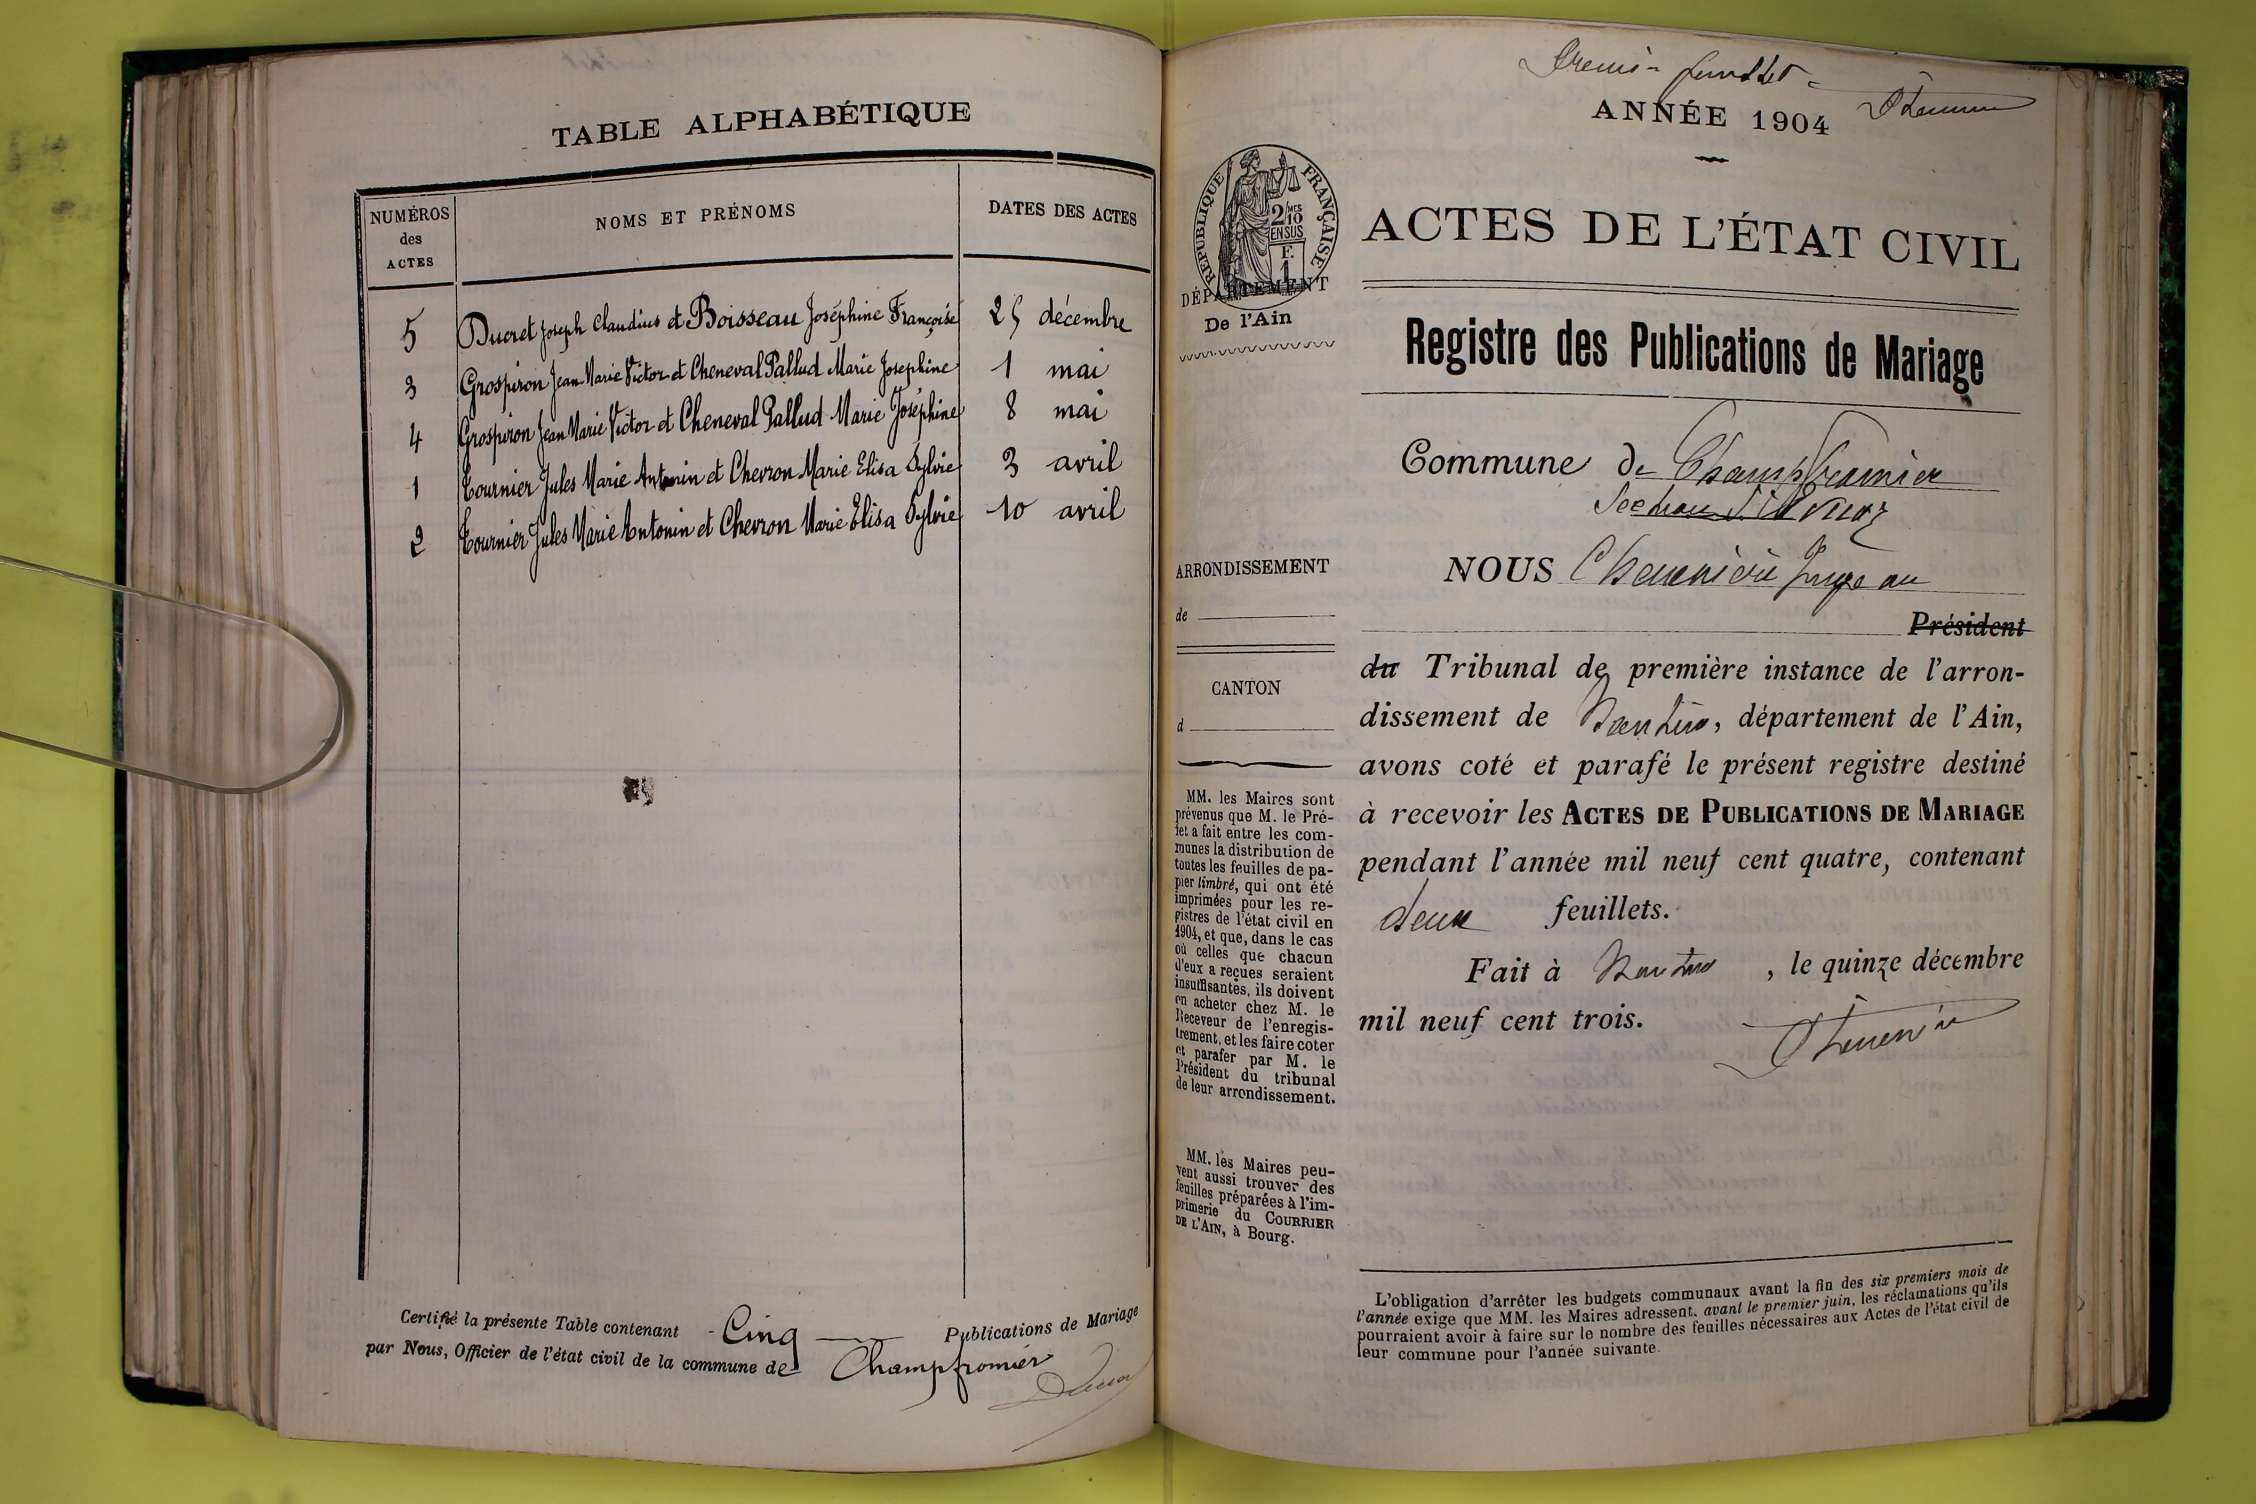 TABLE ALPHABÉTIQUE
NUMÉROS des ACTES
NOMS ET PRÉNOMS
DATES DES ACTES
5 Ducret Joseph Claudius et Boisseau Joséphine Françoise 25 décembre
3 Grospiron Jean Marie Victor et Cheneval Pallud Marie Josephine 1 mai
4 Grospiron Jean Marie Victor et Cheneval Pallud Marie Joséphine 8 mai
1 Tournier Jules Marie Antonin et Chevron Marie Elisa Sylvie 3 avril
2 Tournier Jules Marie Antonin et Chevron Marie Elisa Sylvie 10 avril
Certifié la présente Table contenant Cinq Publications de Mariage
par Nous, Officier de l'état civil de la commune de Champfromier
ANNÉE 1904
RÉPUBLIQUE FRANÇAISE
2/10 MES
EN SUS
F.
1
DÉPARTEMENT
De l'Ain
ACTES DE L'ÉTAT CIVIL
Registre des Publications de Mariage
Commune de Champfromier
Section d'
ARRONDISSEMENT
de
CANTON
d
MM. les Maires sont
prévenus que M. le Pré-
fet a fait entre les com-
munes la distribution de
toutes les feuilles de pa-
pier timbré, qui ont été
imprimées pour les re-
gistres de l'état civil en
1904, et que, dans le cas
où celles que chacun
d'eux a reçues seraient
insuffisantes, ils doivent
en acheter chez M. le
Receveur de l'enregis-
trement, et les faire coter
et parafer par M. le
Président du tribunal
de leur arrondissement.
MM. les Maires peu-
vent aussi trouver des
feuilles préparées à l'im-
primerie du COURRIER
DE L'AIN, à Bourg.
NOUS Juge au
Président
du Tribunal de première instance de l'arron-
dissement de Nantua, département de l'Ain,
avons coté et parafé le présent registre destiné
à recevoir les ACTES DE PUBLICATIONS DE MARIAGE
pendant l'année mil neuf cent quatre, contenant
deux feuillets.
Fait à Nantua, le quinze décembre
mil neuf cent trois.
L'obligation d'arrêter les budgets communaux avant la fin des six premiers mois de
l'année exige que MM. les Maires adressent, avant le premier juin, les réclamations qu'ils
pourraient avoir à faire sur le nombre des feuilles nécessaires aux Actes de l'état civil de
leur commune pour l'année suivante.